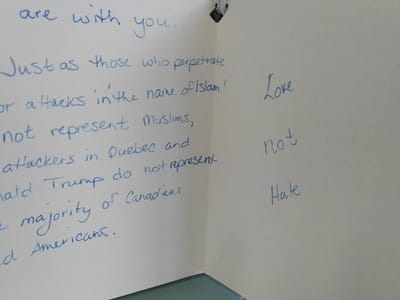 are with you.
Just as those who perpetrate
or attacks in the name of Islam
not represent Muslims,
attackers in Quebec and
nald Trump do not represent
e majority of Canadians
d Americans.
Love
not
Hate